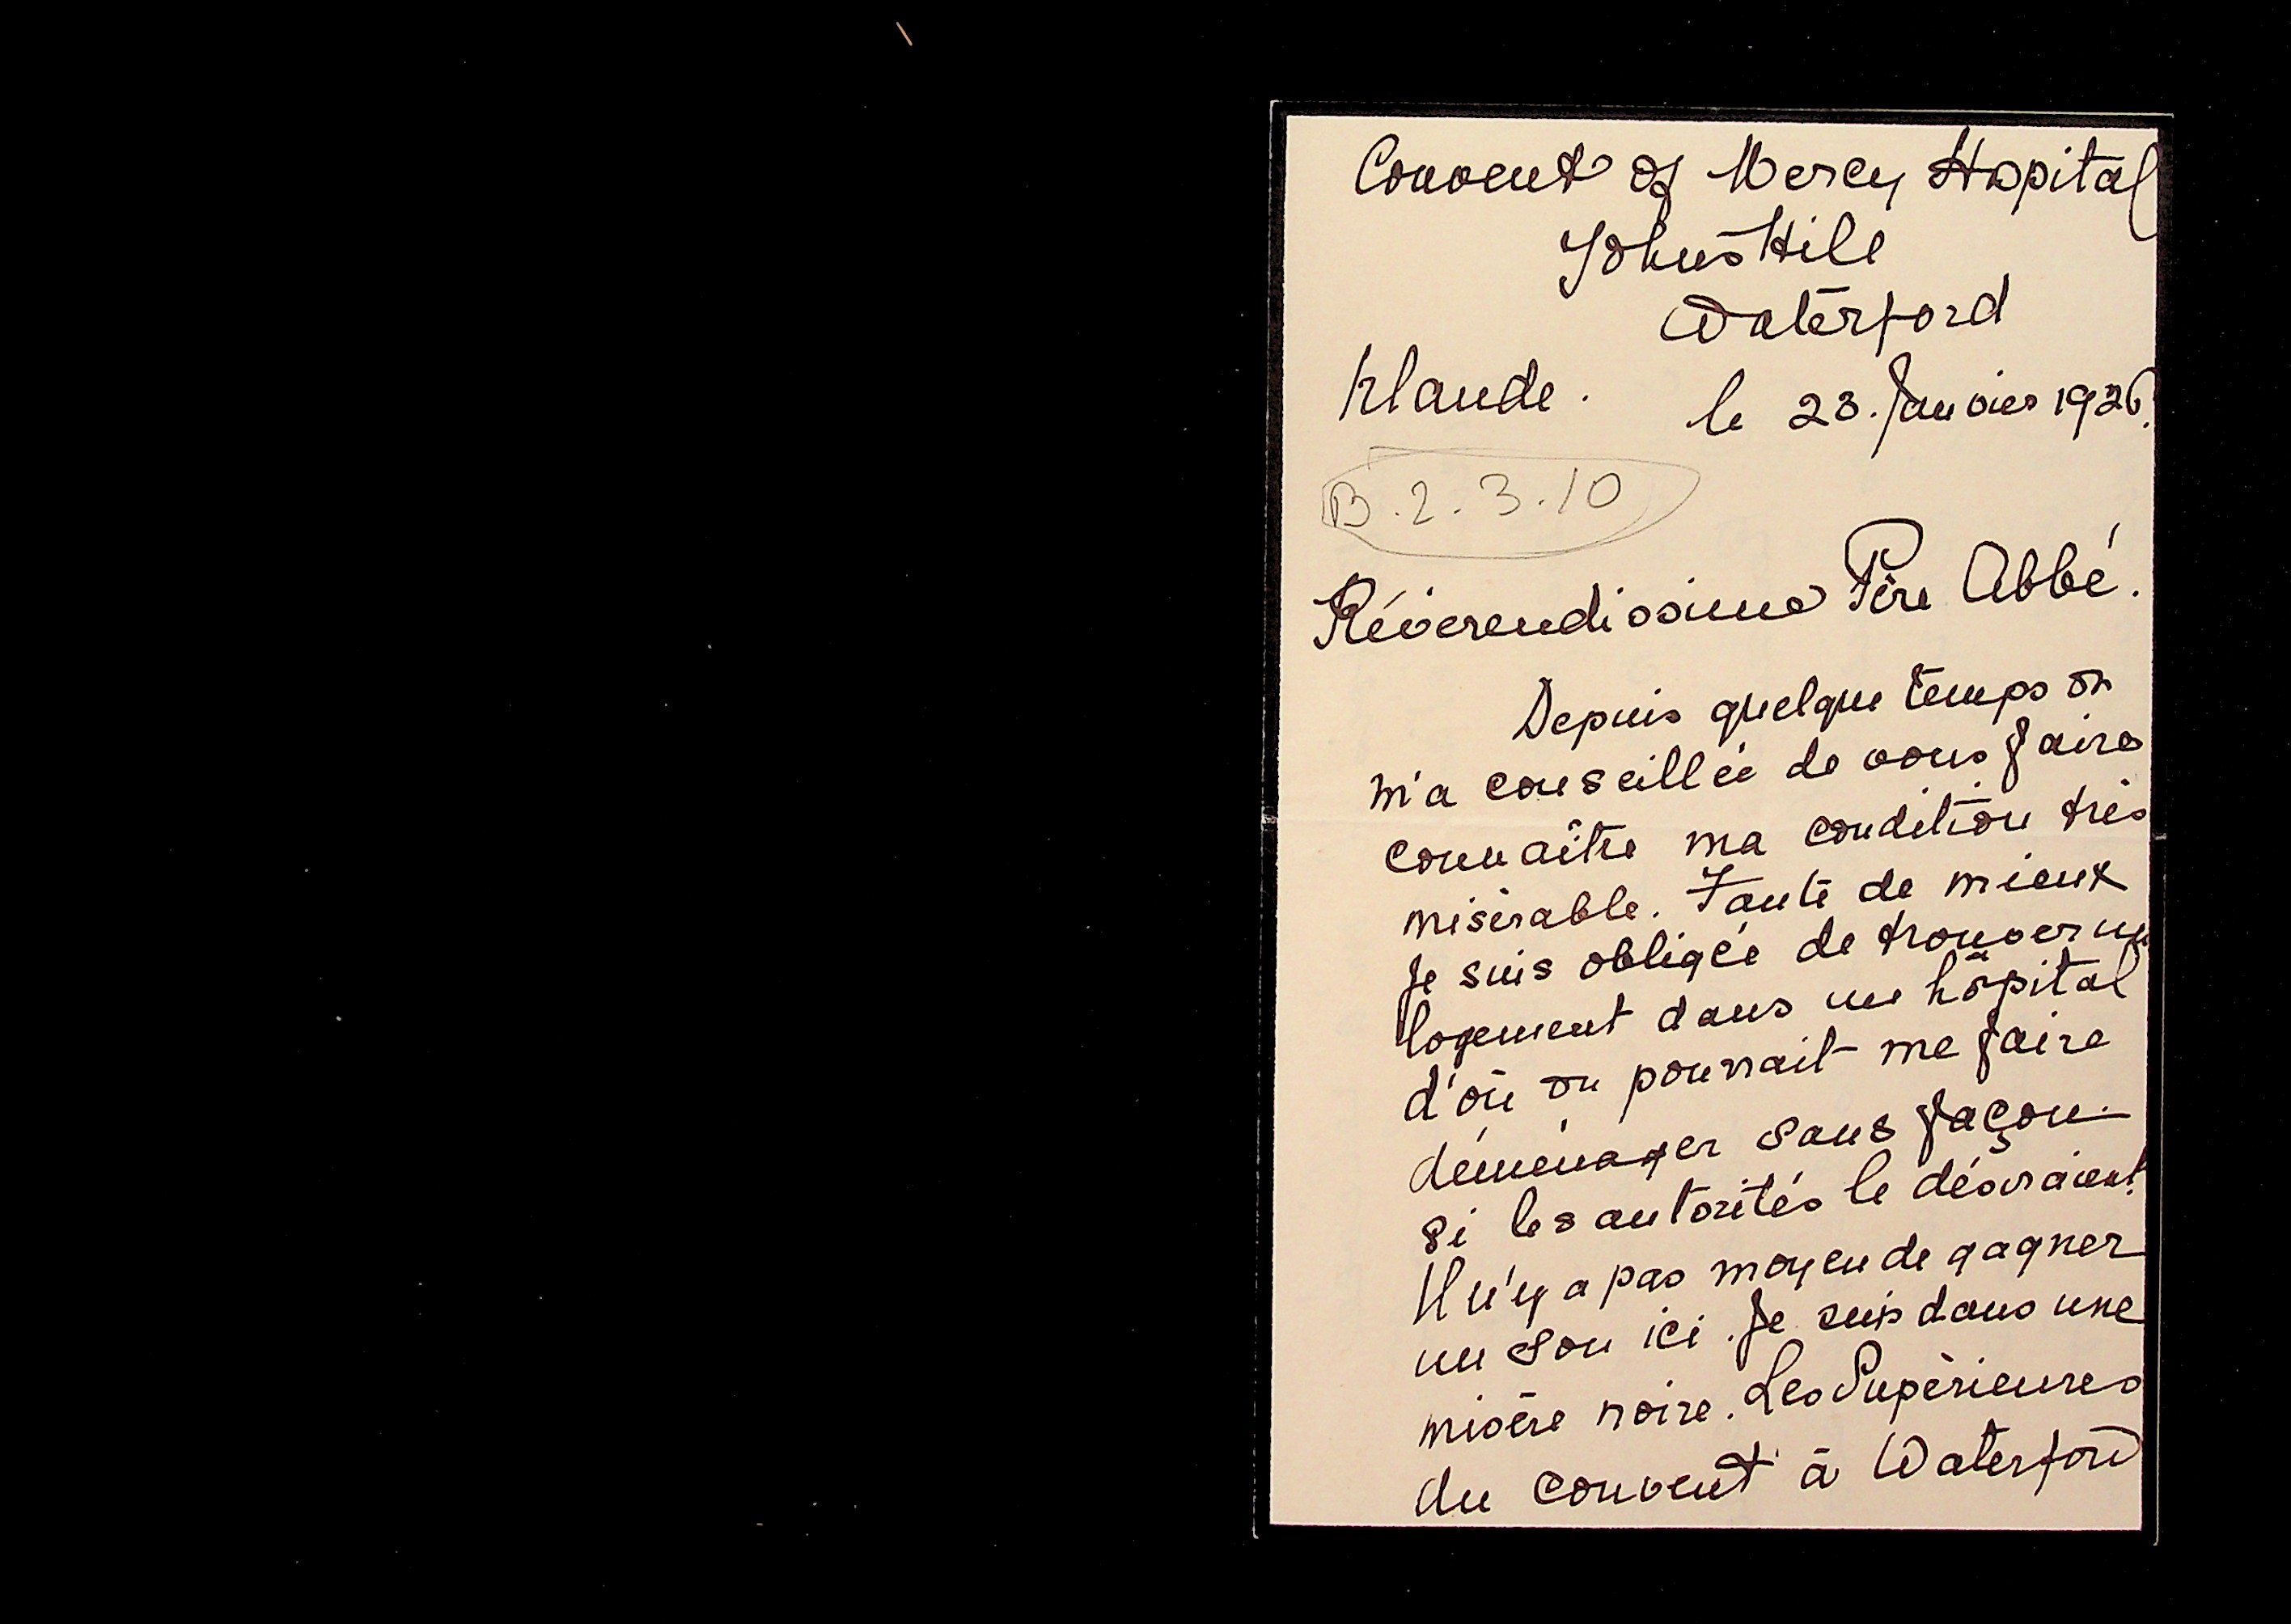 Convent of Mercy Hopital
Johns Hill
Waterford
Irlande. le 23. Janvier 1926.
B.2.3.10
Révérendissime Père Abbé.
Depuis quelque temps on
m'a conseillée de vous faire
connaître ma condition très
misérable. Faute de mieux
je suis obligée de trouver un
logement dans un hôpital
d'où on pourrait me faire
déménager sans façon
si les autorités le désiraient.
Il n'y a pas moyen de gagner
un sou ici. Je suis dans une
misère noire. Les Supérieures
du convent à Waterford